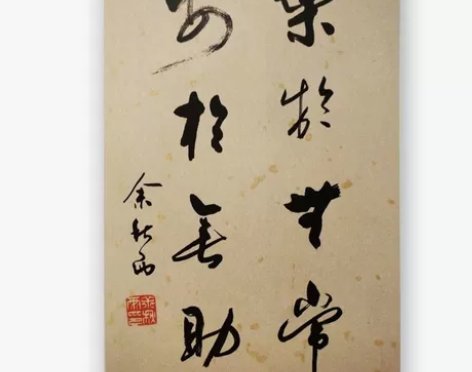 樂於無常
安於無助
余秋雨